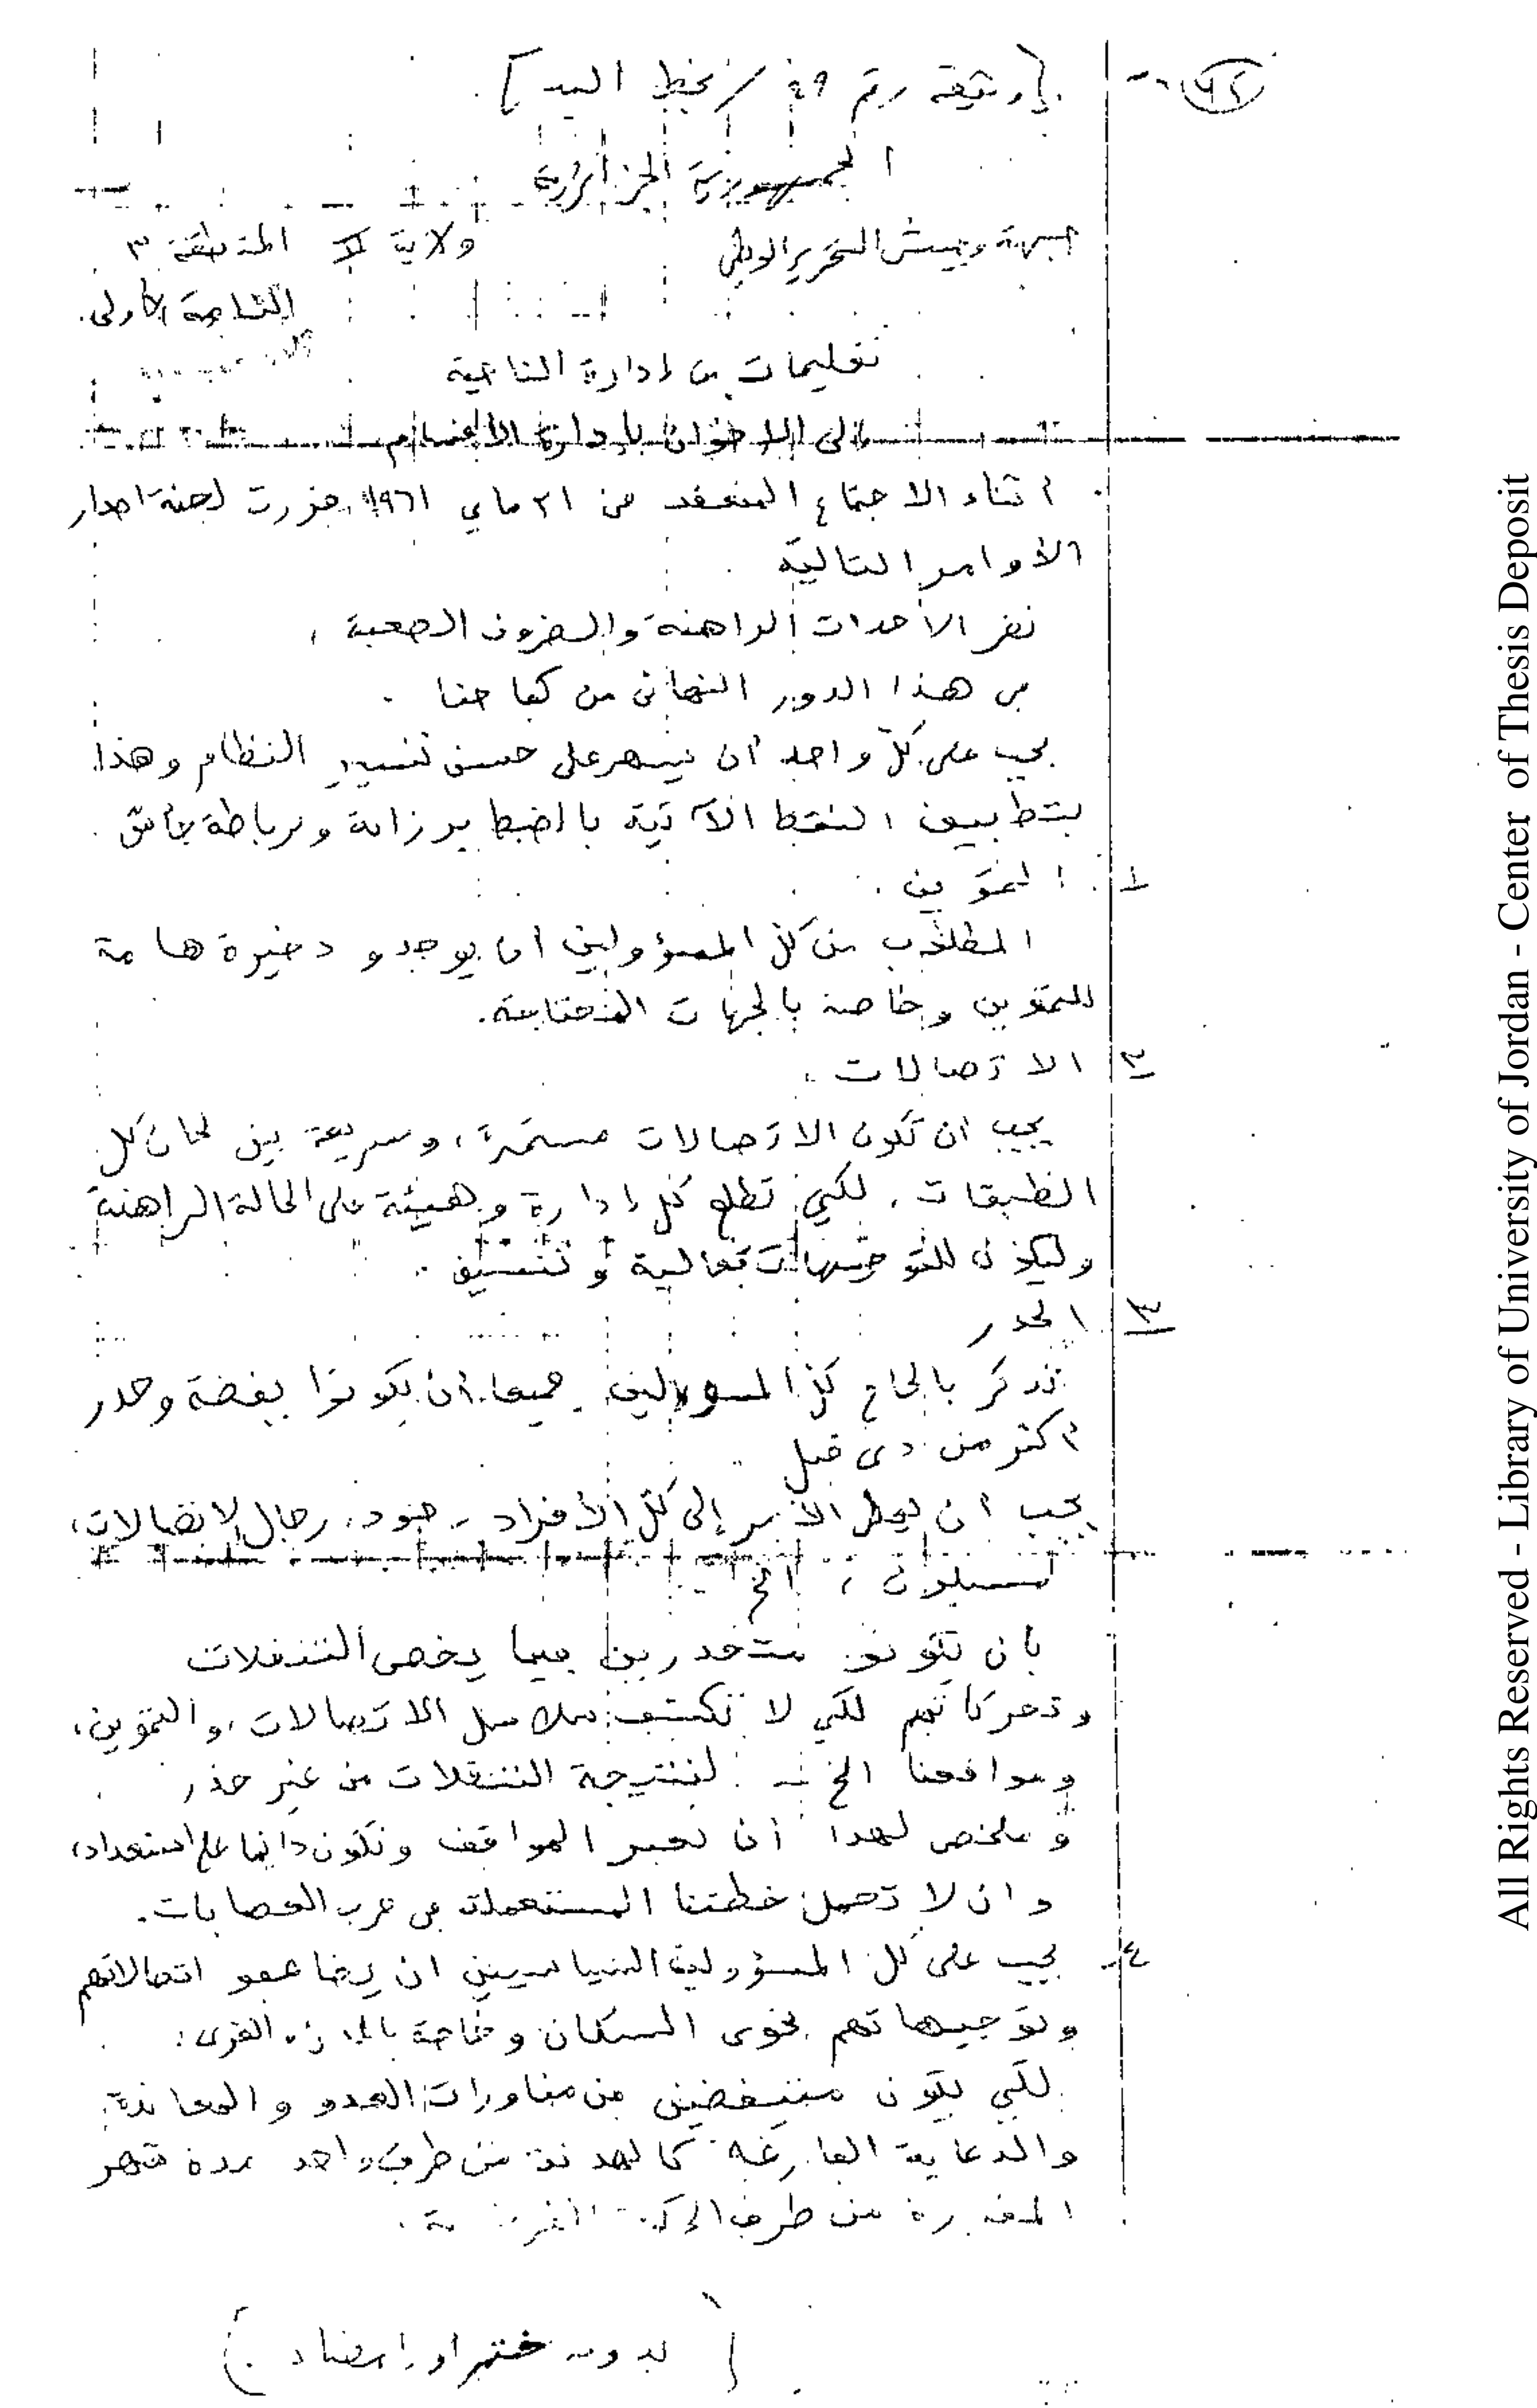 [وثيقة رقم ٤٩ / بخط اليد]
الجمهورية الجزائرية
جبهة وجيش التحرير الوطني ولاية II المنطقة ٣
الناحية الأولى.
تعليمات من إدارة الناحية
إلى الاخوان بإدارة الأقسام
أثناء الاجتماع المنعقد في ٢١ ماي ١٩٦١ قررت لجنة اصدار
الأوامر التالية
نضر الأحدات الراهنة والضروف الصعبة ،
في هذا الدور النهائي من كفاحنا .
يجب على كلّ واحد أن يسهر على حسن تسيير النظام وهذا
بتطبيق النقط الآتية بالضبط برزانة ورباطة جأش
١ التموين .
المطلوب من كل المسؤولين أن يوجدو دخيرة هامة
للتموين وخاصة بالجهات
٢ الاتصالات .
يجب ان تكون الاتصالات مستمرة ، وسريعة بين لجان كل
الطبقات . لكي تطلع كل إدارة وهيئة على الحالة الراهنة
وليكون للتوجيهات فعالية وتنسيق .
٣ الحدر
نذكر بالحاح كل المسؤولين جميعا أن يكونوا بيفضة وحدر
أكثر من دي قبل
يجب أن يعطى الأمر إلى كل الأفراد - جنود ، رجال الإتصالات ،
مسبلون ، الخ
بأن يكونو متحدرين فيما يخص التنقلات
وتحركاتهم لكي لا تكتشف سلاسل الاتصالات ، والتموين ،
ومواقعنا الخ لنتيجة التنقلات من غير حذر
وملخص لهدا أن المواقف ونكون دائما على استعداد ،
وان لا تهمل خطتنا المستعملة في حرب العصابات .
٤- يجب على كل المسؤولين السياسيين ان يضاعفو اتصالاتهم
وتوجيهاتهم نحوى السكان وخاصة بالمدن و القرى :
لكي يكون متيفضين من مناورات العدو والمعاندة
والدعاية الفارغة كالهدنة من طرف واحد مدة شهر
المقررة من طرف الحكومة الفرنسية .
( بدون ختم او إمضاء . )
All Rights Reserved - Library of University of Jordan - Center of Thesis Deposit